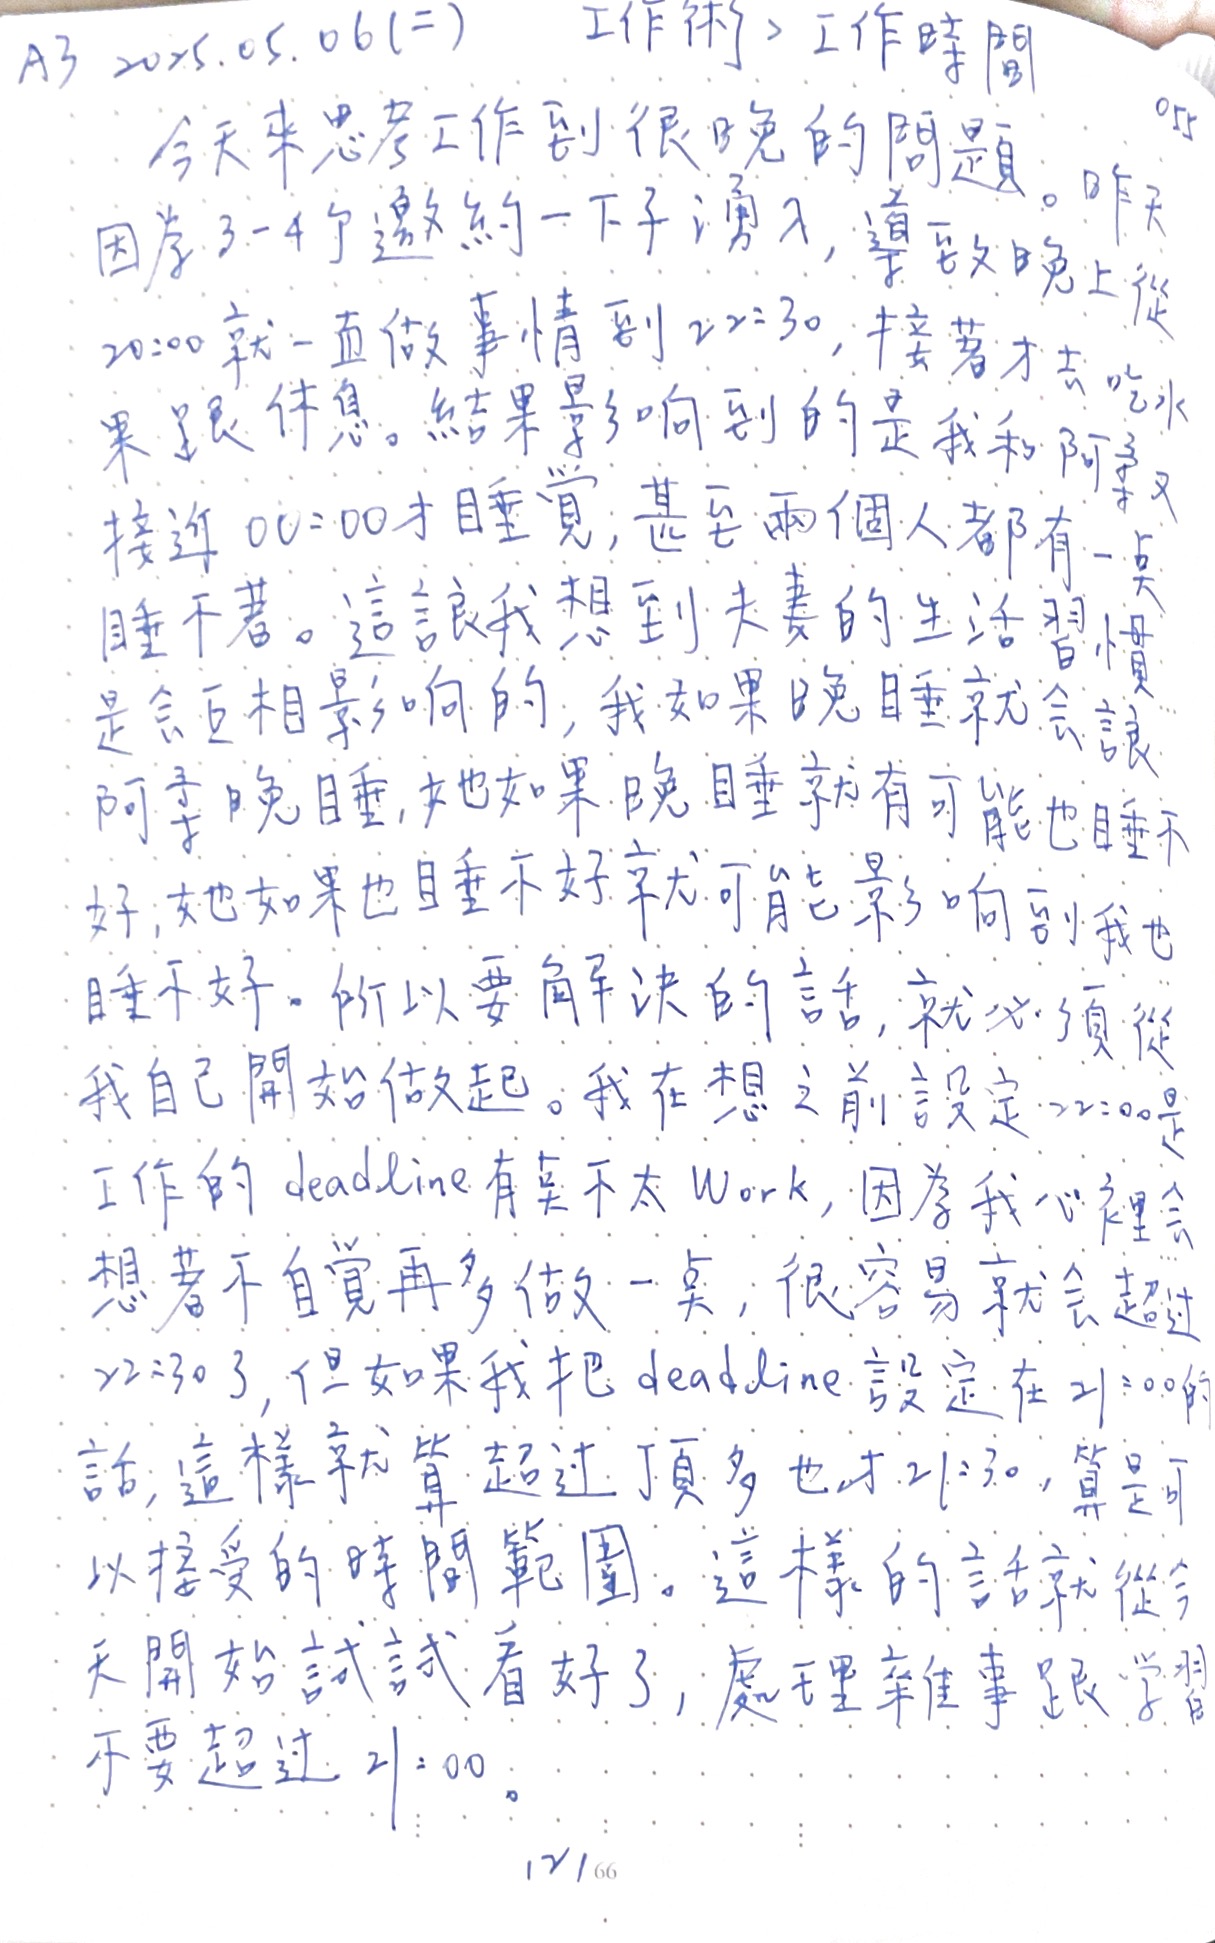 A3 2025.05.06(二) 工作術>工作時間
055
今天來思考工作到很晚的問題。昨天
因為3-4个邀約一下子湧入,導致晚上從
20:00就一直做事情到22:30,接著才去吃水
果跟休息。結果影响到的是我和阿柔又
接近00:00才睡覚,甚至兩個人都有一点
睡不著。這讓我想到夫妻的生活習慣
是会互相影响的,我如果晚睡就会讓
阿柔晚睡,她如果晚睡就有可能也睡不
好,她如果也睡不好就可能影响到我也
睡不好。所以要解決的話,就必須從
我自己開始做起。我在想之前設定22:00是
工作的deadline有点不太Work,因為我心裡会
想著不自覚再多做一点,很容易就会超过
22:30了,但如果我把deadline設定在21:00的
話,這樣就算超过頂多也才21:30,算是可
以接受的時間範圍。這樣的話就從今
天開始試試看好了,處理雜事跟学習
不要超过21:00。
121
66